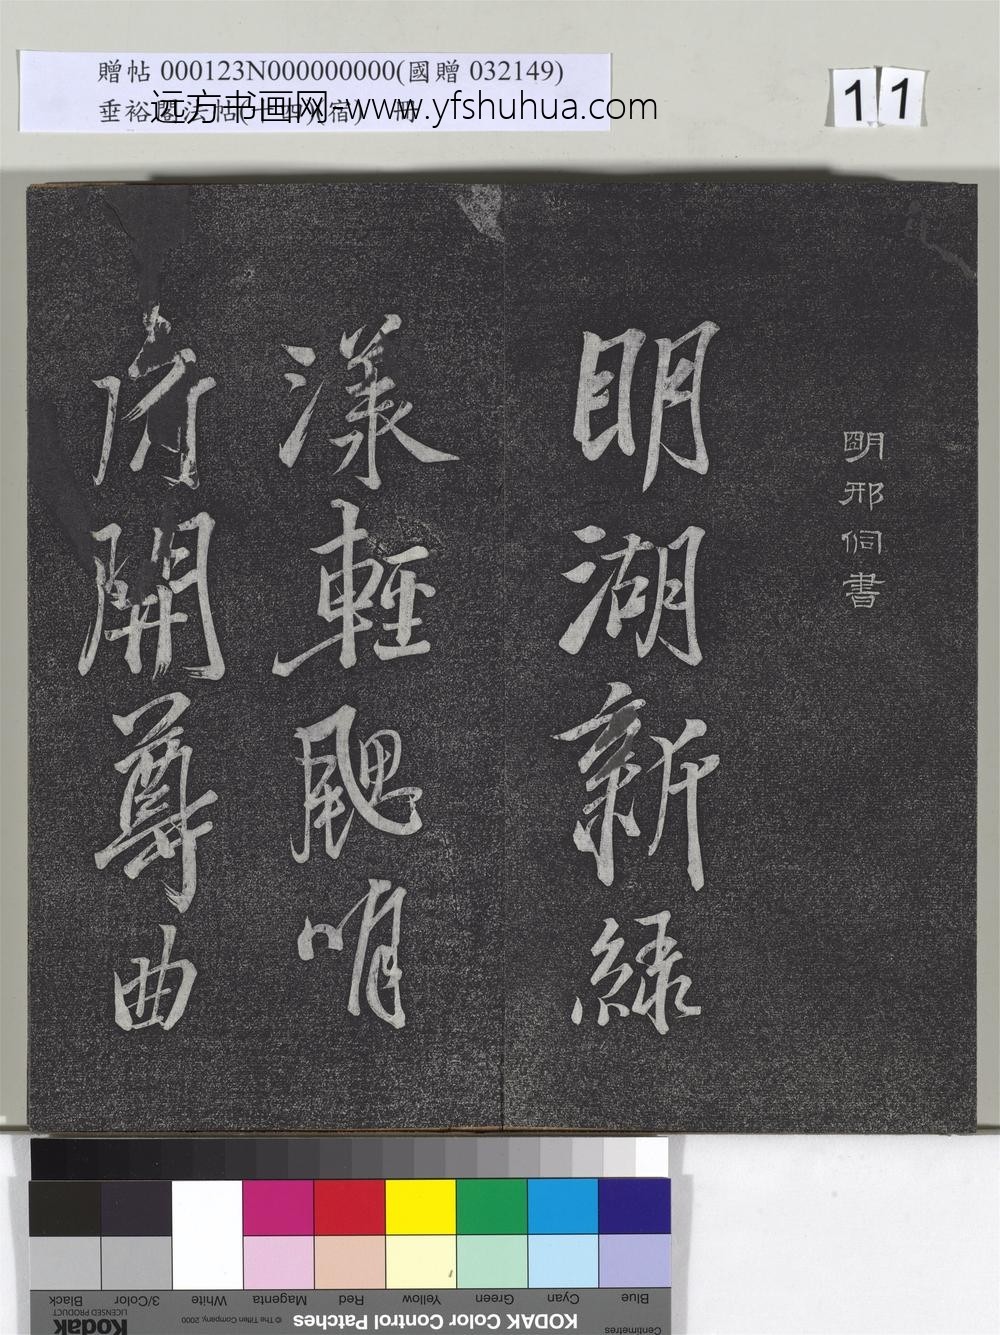 贈帖 000123N000000000(國贈 032149)
垂裕閣法帖(十四)(宿) 冊
远方书画网-www.yfshuhua.com
11
明邢侗書
明湖新綠
漾輕颸
開尊曲
Blue Cyan Green Yellow Red Magenta White 3/Color Black
KODAK Color Control Patches
© The Tiffen Company, 2000
Kodak
LICENSED PRODUCT
Centimetres